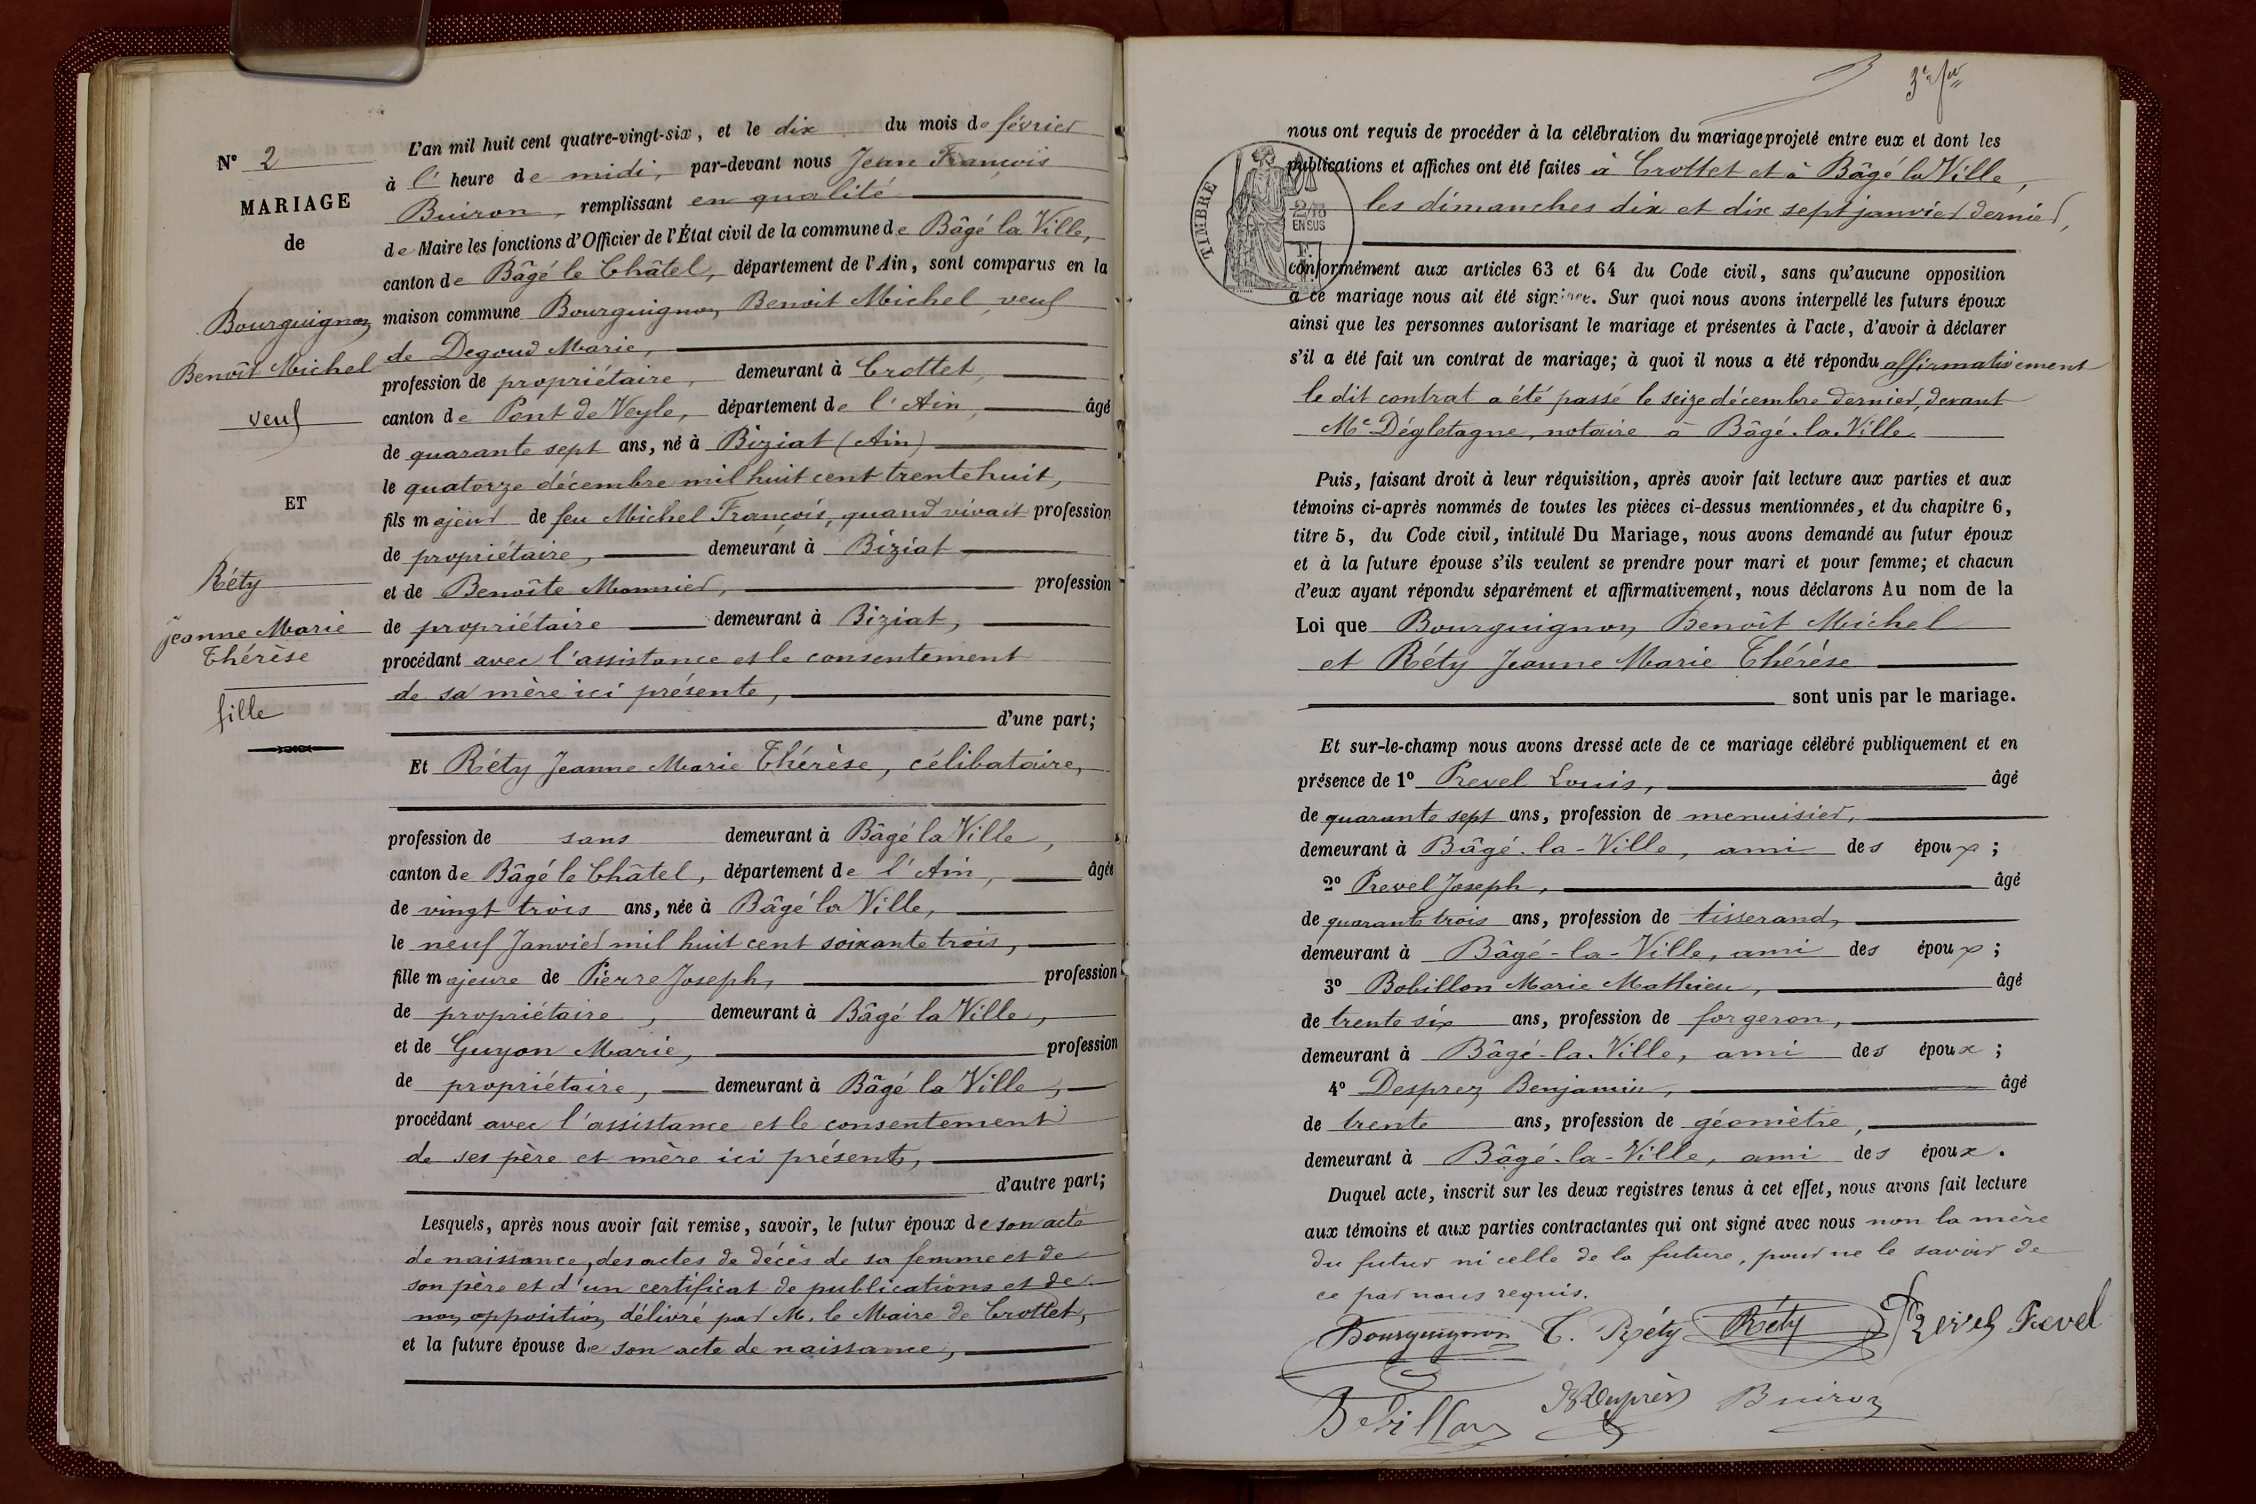 N° 2
MARIAGE
de
Bourguignon
Benoît Michel
veuf
ET
Réty
Jeanne Marie
Thérèse
fille
L'an mil huit cent quatre-vingt-six, et le dix du mois de février
à l' heure de midi, par-devant nous Jean François
Buiron, remplissant en qualité
de Maire les fonctions d'Officier de l'État civil de la commune de Bâgé la Ville,
canton de Bâgé le Châtel, département de l'Ain, sont comparus en la
maison commune Bourguignon Benoit Michel, veuf
de Degoud Marie,
profession de propriétaire, demeurant à Crottet,
canton de Pont de Veyle, département de l'Ain, âgé
de quarante sept ans, né à Biziat (Ain)
le quatorze décembre mil huit cent trente huit,
fils majeur de feu Michel François, quand vivait profession
de propriétaire, demeurant à Biziat
et de Benoîte Monnier, profession
de propriétaire demeurant à Biziat,
procédant avec l'assistance et le consentement
de sa mère ici présente,
d'une part;
Et Réty Jeanne Marie Thérèse, célibataire,
profession de sans demeurant à Bâgé la Ville,
canton de Bâgé le Châtel, département de l'Ain, âgée
de vingt trois ans, née à Bâgé la Ville,
le neuf Janvier mil huit cent soixante trois,
fille majeure de Pierre Joseph, profession
de propriétaire, demeurant à Bâgé la Ville,
et de Guyon Marie, profession
de propriétaire, demeurant à Bâgé la Ville,
procédant avec l'assistance et le consentement
de ses père et mère ici présents,
d'autre part;
Lesquels, après nous avoir fait remise, savoir, le futur époux de son acte
de naissance, des actes de décès de sa femme et de
son père et d'un certificat de publications et de
non opposition délivré par M. le Maire de Crottet,
et la future épouse de son acte de naissance,
nous ont requis de procéder à la célébration du mariage projeté entre eux et dont les
publications et affiches ont été faites à Crottet et à Bâgé la Ville,
les dimanches dix et dix sept janvier dernier,
TIMBRE
EN SUS
conformément aux articles 63 et 64 du Code civil, sans qu'aucune opposition
à ce mariage nous ait été signifiée. Sur quoi nous avons interpellé les futurs époux
ainsi que les personnes autorisant le mariage et présentes à l'acte, d'avoir à déclarer
s'il a été fait un contrat de mariage; à quoi il nous a été répondu affirmativement
le dit contrat a été passé le seize décembre dernier, devant
Me Dégletagne, notaire à Bâgé-la-Ville
Puis, faisant droit à leur réquisition, après avoir fait lecture aux parties et aux
témoins ci-après nommés de toutes les pièces ci-dessus mentionnées, et du chapitre 6,
titre 5, du Code civil, intitulé Du Mariage, nous avons demandé au futur époux
et à la future épouse s'ils veulent se prendre pour mari et pour femme; et chacun
d'eux ayant répondu séparément et affirmativement, nous déclarons Au nom de la
Loi que Bourguignon Benoît Michel
et Réty Jeanne Marie Thérèse
sont unis par le mariage.
Et sur-le-champ nous avons dressé acte de ce mariage célébré publiquement et en
présence de 1° Prevel Louis, âgé
de quarante sept ans, profession de menuisier,
demeurant à Bâgé-la-Ville, ami des époux;
2° Prevel Joseph, âgé
de quarante trois ans, profession de tisserand,
demeurant à Bâgé-la-Ville, ami des époux;
3° Bobillon Marie Mathieu, âgé
de trente six ans, profession de forgeron,
demeurant à Bâgé-la-Ville, ami des époux;
4° Desprez Benjamin, âgé
de trente ans, profession de géomètre,
demeurant à Bâgé-la-Ville, ami des époux.
Duquel acte, inscrit sur les deux registres tenus à cet effet, nous avons fait lecture
aux témoins et aux parties contractantes qui ont signé avec nous non la mère
du futur ni celle de la future, pour ne le savoir de
ce par nous requis.
Bourguignon T. Réty Réty Prevel Prevel
Bobillon Buiron